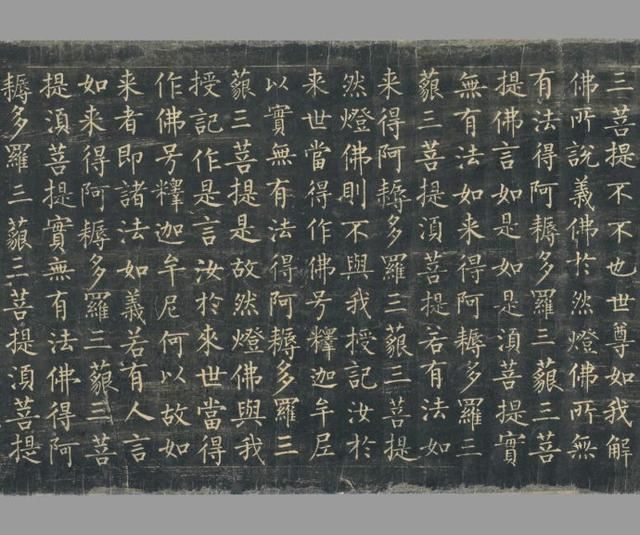 三菩提不不也世尊如我解
佛所說義佛於然燈佛所無
有法得阿耨多羅三藐三菩
提佛言如是如是湏菩提實
無有法如來得阿耨多羅三
藐三菩提湏菩提若有法如
来得阿耨多羅三藐三菩提
然燈佛則不與我授記汝於
来世當得作佛号釋迦牟尼
以實無有法得阿耨多羅三
藐三菩提是故然燈佛與我
授記作是言汝於來世當得
作佛号釋迦牟尼何以故如
来者即諸法如義若有人言
如来得阿耨多羅三藐三菩
提湏菩提實無有法佛得阿
耨多羅三藐三菩提湏菩提